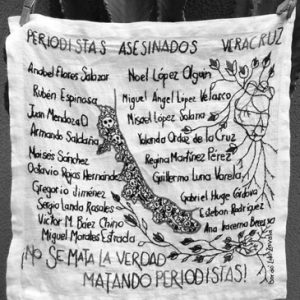 PERIODISTAS ASESINADOS VERACRUZ
Anabel Flores Salazar
Rubén Espinosa
Juan Mendoza D
Armando Saldaña
Moisés Sánchez
Octavio Rojas Hernández
Gregorio Jiménez
Sergio Landa Rosales
Víctor M. Báez Chino
Miguel Morales Estrada
Noel López Olguín
Miguel Angel López Velasco
Misael López Solana
Yolanda Ordaz de la Cruz
Regina Martínez Pérez
Guillermo Luna Varela
Gabriel Huge Córdova
Esteban Rodríguez
Ana Irasema Becerra
¡NO SE MATA LA VERDAD
MATANDO PERIODISTAS!